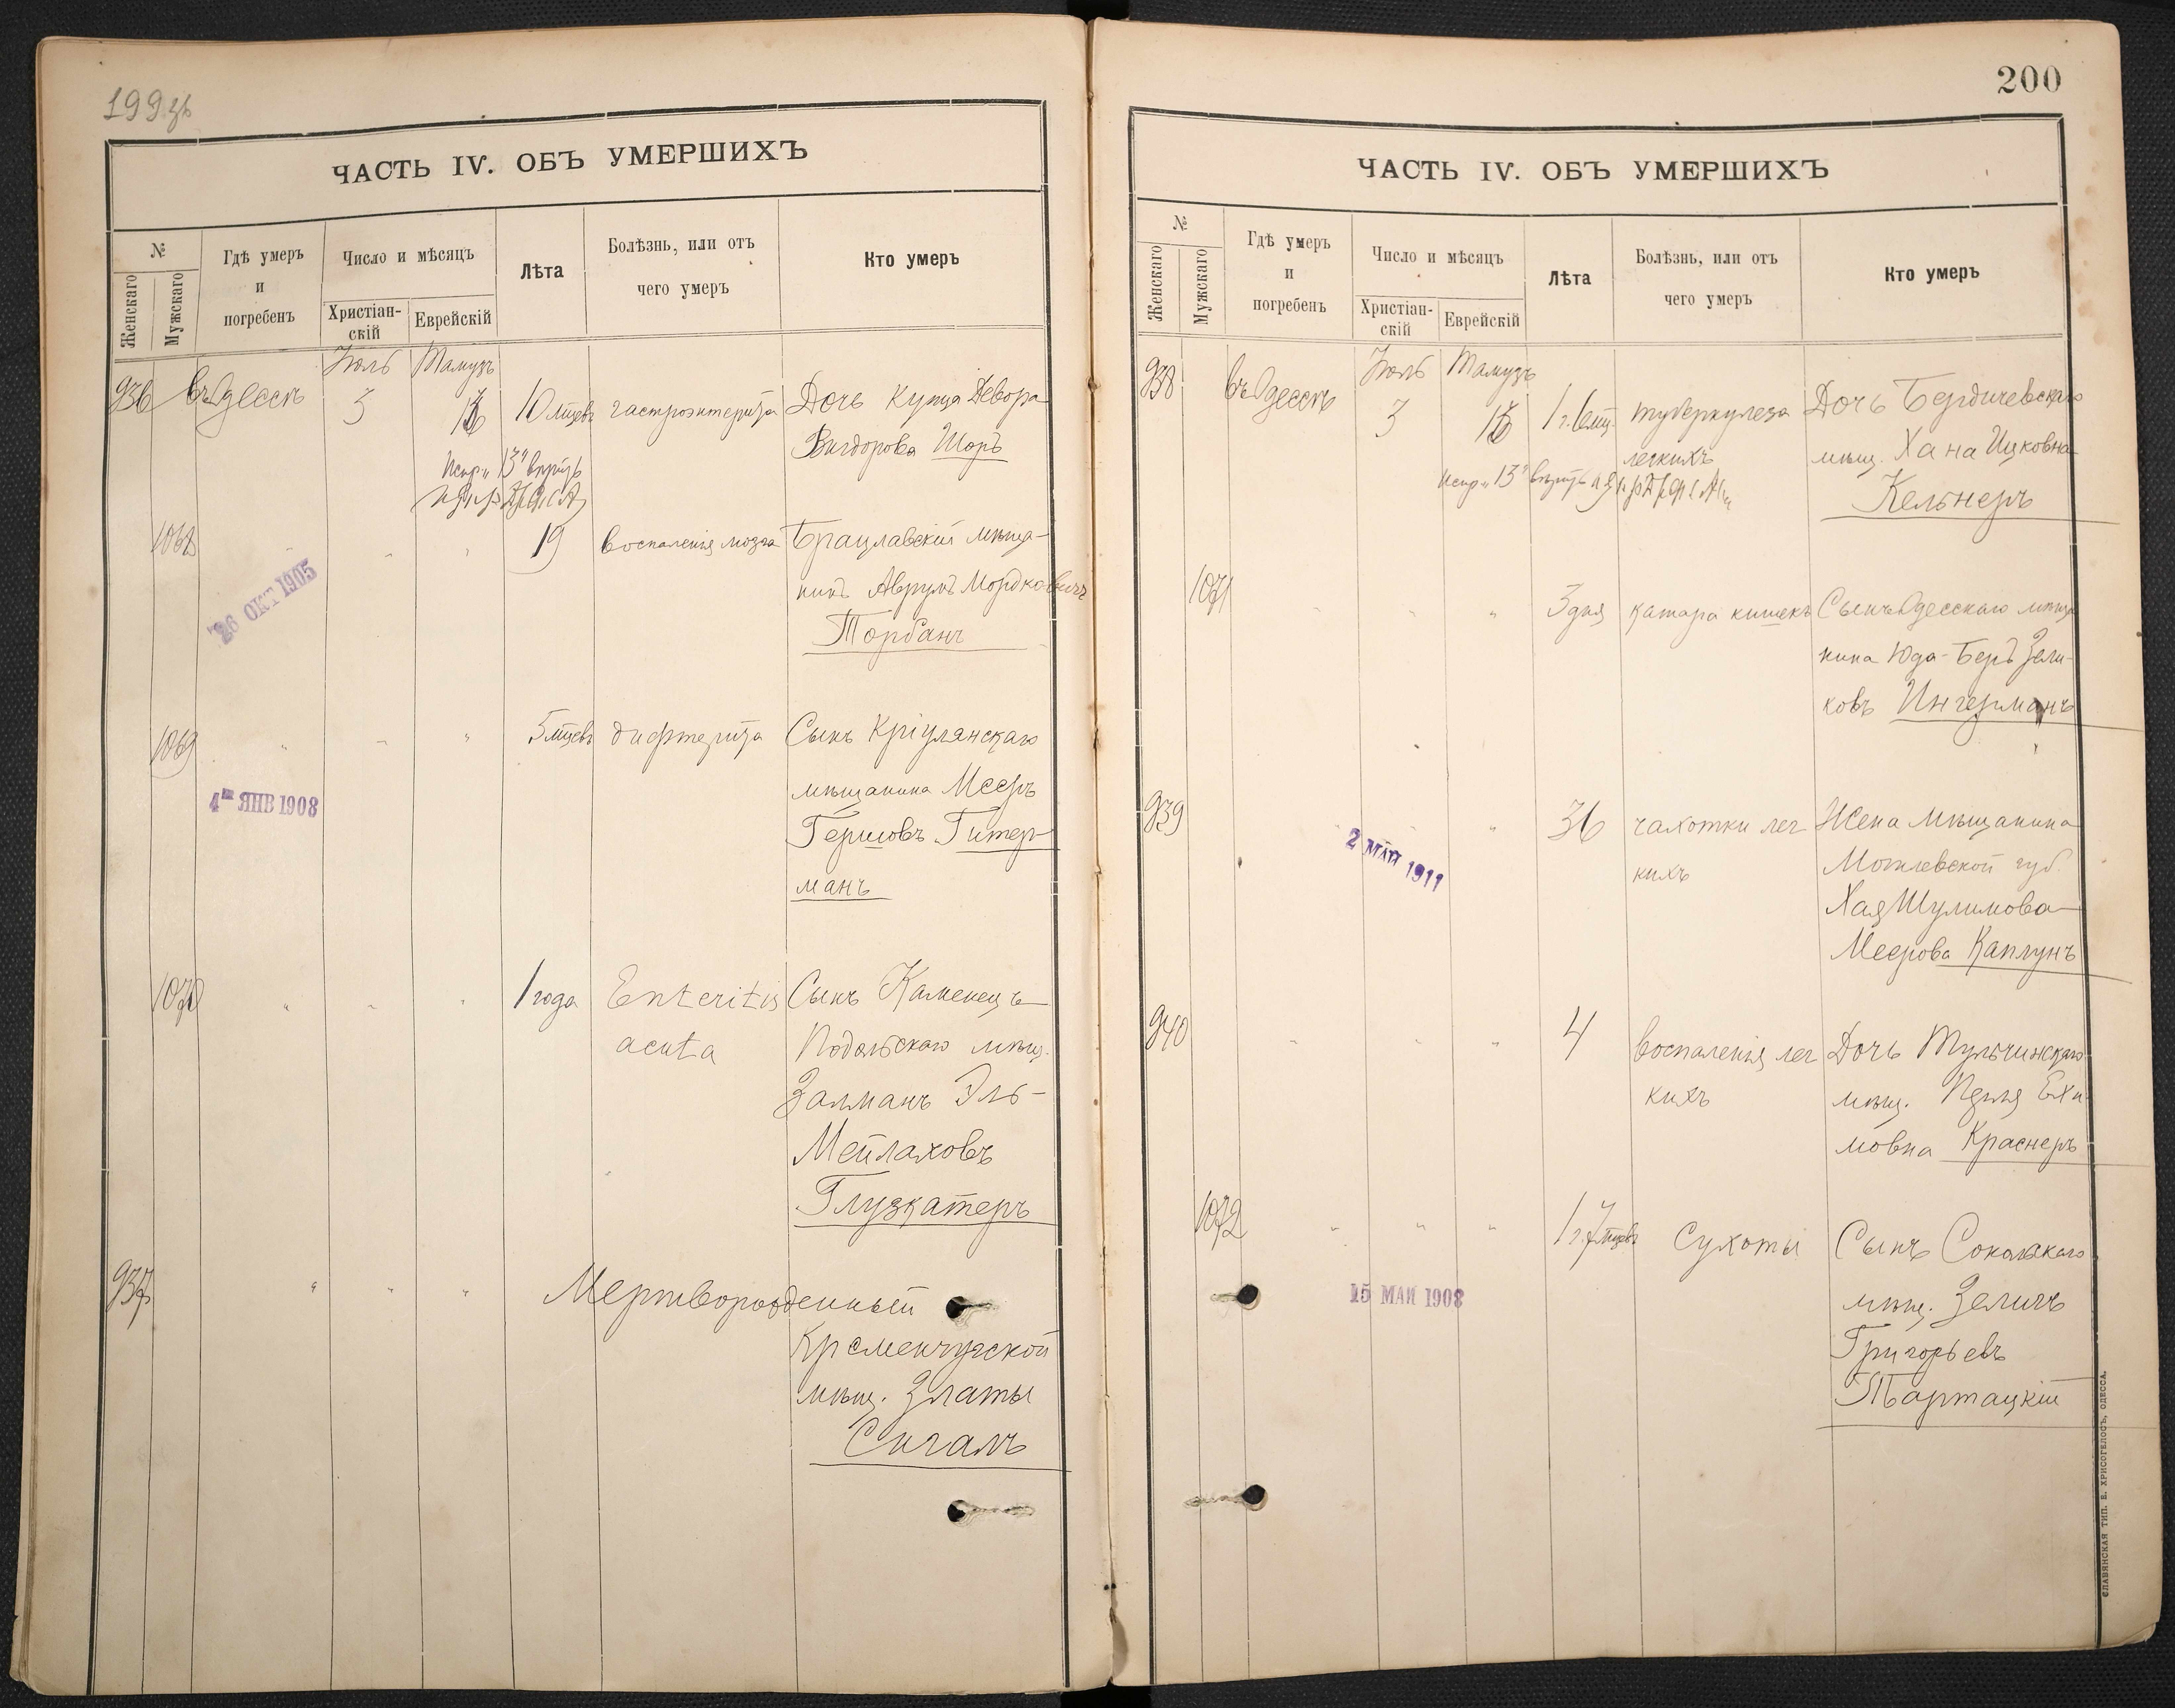 199 зв
ЧАСТЬ IV. ОБЪ УМЕРШИХЪ
№
Женскаго
Мужскаго
Гдѣ умеръ
и
погребенъ
Число и мѣсяцъ
Христіан-
скій
Еврейскій
Лѣта
Болѣзнь, или отъ
чего умеръ
Кто умеръ
Іюль Тамузъ
936 Въ Одессѣ 3 13 10 мцевъ гастроэнтерита Дочь купца Девора
Вигдорова Шоръ
Испр. „13" вѣрить
1068 " " 19 воспаленія мозга Брацлавскій мѣща-
нинъ Аврумъ Мордковичъ
Торбанъ
26 ОКТ 1905
1069 " " " 5 мцевъ дифтерита Сынъ Кріулянскаго
мѣщанина Мееръ
Гершовъ Гитер-
манъ
4 ЯНВ 1908
1070 " " " 1 года Enteritis Сынъ Каменецъ
acuta Подольскаго мѣщ.
Залманъ Эль-
Мейлаховъ
Глузкатеръ
937 " " " Мертворожденный
Кременчугской
мѣщ. Златы
Сигалъ
200
ЧАСТЬ IV. ОБЪ УМЕРШИХЪ
№
Женскаго
Мужскаго
Гдѣ умеръ
и
погребенъ
Число и мѣсяцъ
Христіан-
скій
Еврейскій
Лѣта
Болѣзнь, или отъ
чего умеръ
Кто умеръ
Іюль Тамузъ
938 Въ Одессѣ 3 13 1 г. 6 мц. туберкулеза Дочь Бердичевскаго
легкихъ мѣщ. Хана Ицковна
Испр. „13" вѣрить
Кельнеръ
1071 " " " 3 дня катара кишекъ Сынъ Одесскаго мѣща
нина Юда-Беръ Зели-
ковъ Ингерманъ
939 " 36 чахотки лег Жена мѣщанина
кихъ Могилевской губ.
Хая Шулимова
Меерова Каплунъ
2 МАЯ 1911
940 " " " 4 воспаленія лег Дочь Тульчинскаго
кихъ мѣщ. Перля Ехи
мовна Краснеръ
1072 " " " 1 г. 7 мцевъ Сухоты Сынъ
мѣщ. Зеличъ
Григорьевъ
Тартацкій
15 МАЯ 1908
СЛАВЯНСКАЯ ТИП. Е. ХРИСОГЕЛОСЪ, ОДЕССА.